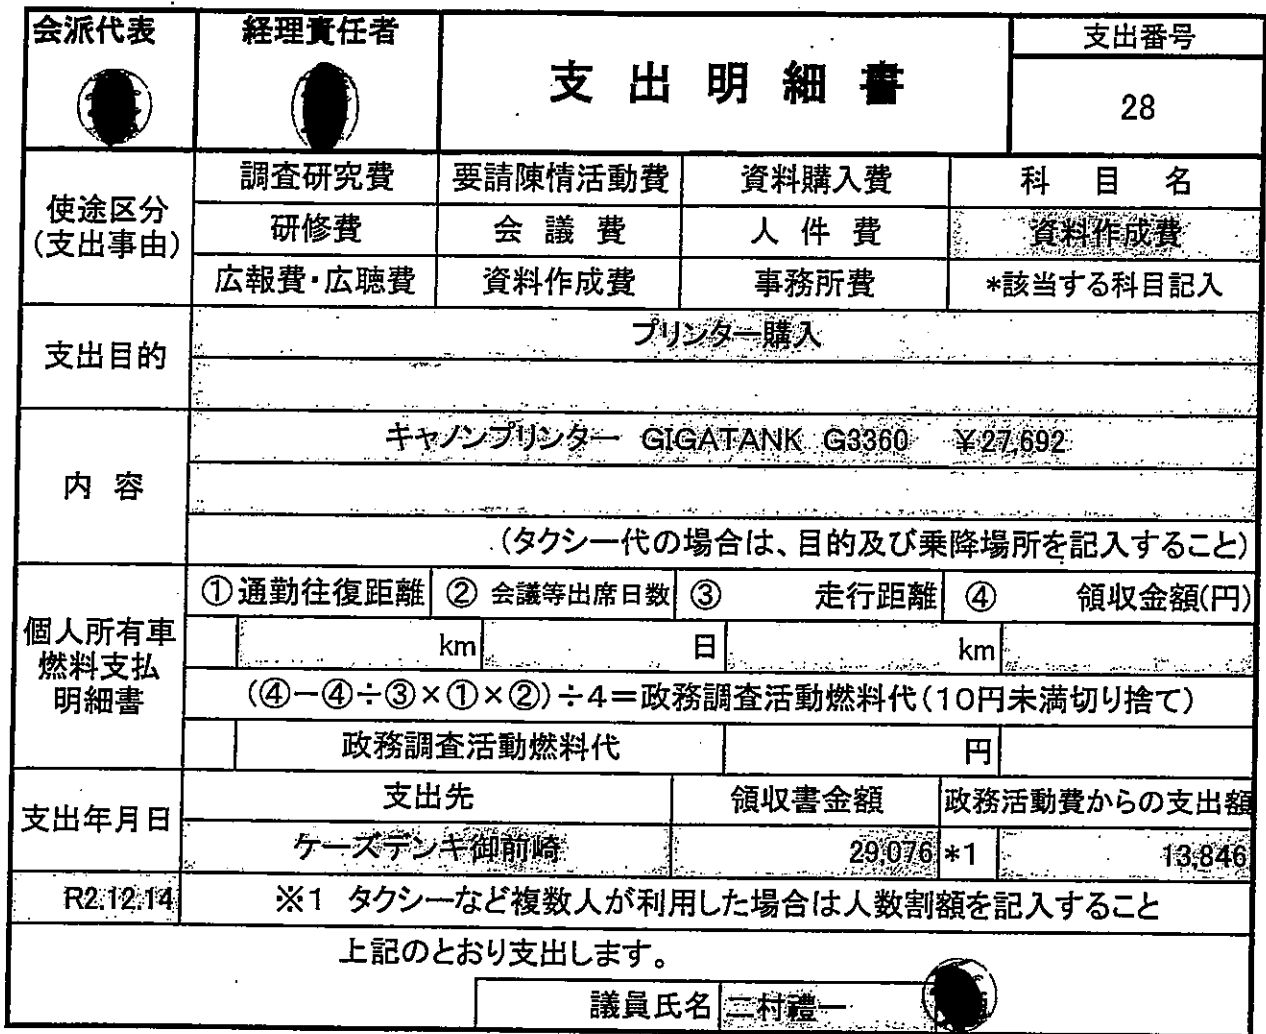 会派代表
経理責任者
支出明細書
支出番号
28
使途区分
(支出事由)
調査研究費 要請陳情活動費 資料購入費 科目名
研修費 会議費 人件費 資料作成費
広報費・広聴費 資料作成費 事務所費 *該当する科目記入
支出目的
プリンター購入
内容
キャノンプリンター GIGATANK G3360 ￥27,692
(タクシー代の場合は、目的及び乗降場所を記入すること)
個人所有車
燃料支払
明細書
①通勤往復距離 ② 会議等出席日数 ③ 走行距離 ④ 領収金額(円)
km 日 km
(④－④÷③×①×②)÷4＝政務調査活動燃料代(10円未満切り捨て)
政務調査活動燃料代 円
支出年月日
支出先 領収書金額 政務活動費からの支出額
ケーズデンキ御前崎 29,076 *1 13,846
R2.12.14 ※1 タクシーなど複数人が利用した場合は人数割額を記入すること
上記のとおり支出します。
議員氏名 二村禮一